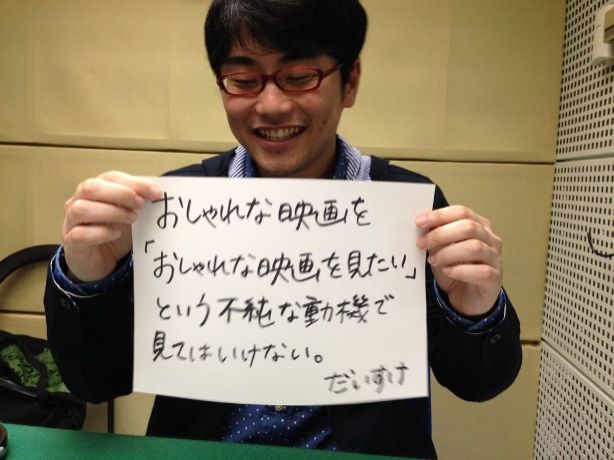 おしゃれな映画を
「おしゃれな映画を見たい」
という不純な動機で
見てはいけない。
だいすけ